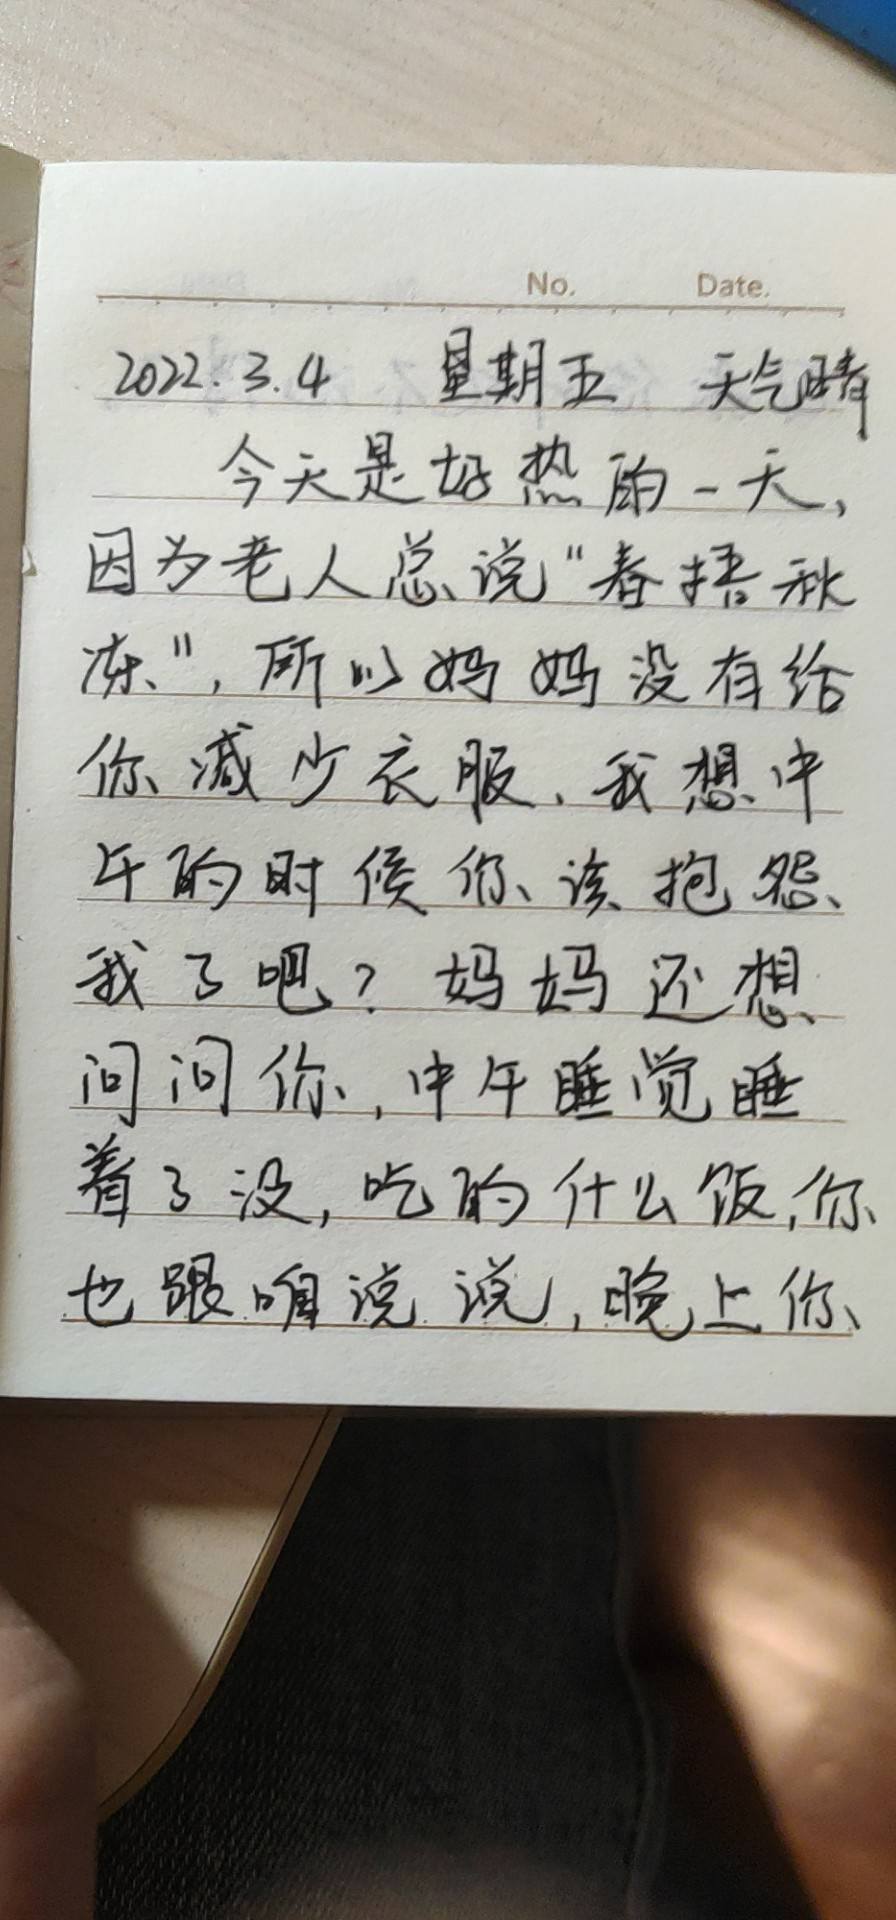 No. Date.
2022.3.4 星期五 天气晴
今天是好热的一天,
因为老人总说“春捂秋
冻”,所以妈妈没有给
你减少衣服、我想中
午的时候你该抱怨
我了吧?妈妈还想
问问你,中午睡觉睡
着了没,吃的什么饭,你
也跟咱说说,晚上你